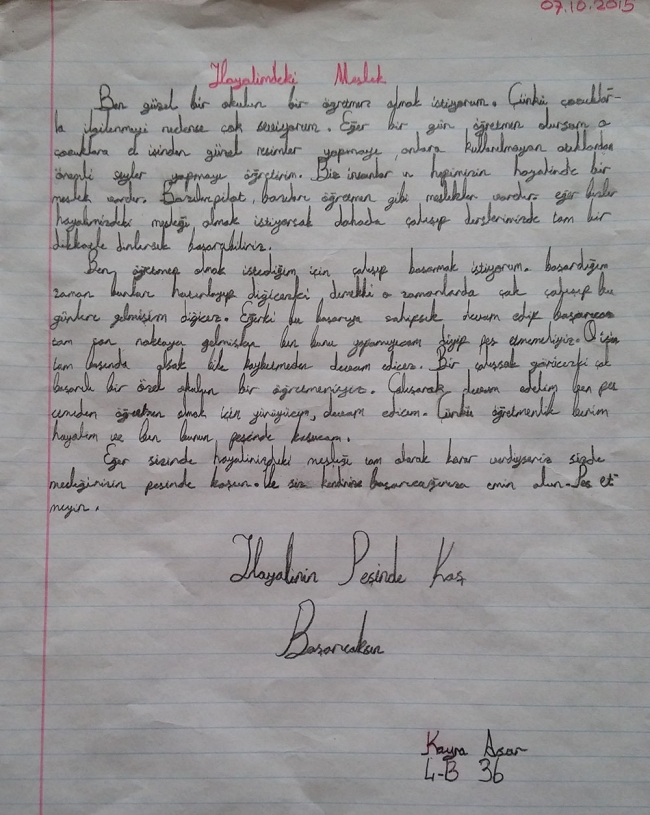 07.10.2015
Hayalimdeki Meslek
Ben güzel bir okulun bir öğretmen olmak istiyorum. Çünkü çocuklar-
la ilgilenmeyi nedense çok seviyorum. Eğer bir gün öğretmen olursam o
çocuklara el işinden günel resimler yapmayı, onlara kullanılmayan atıklardan
önemli şeyler yapmayı öğretirim. Biz insanlar ın hepimizin hayalinde bir
meslek vardır. Bazıları pilot, bazıları öğretmen gibi meslekler vardır. eğer bizler
hayalimizdeki mesleği, olmak istiyorsak dahada çalışıp derslerimizde tam bir
dikkatle dinlersek başarabiliriz.
Ben, öğretmen olmak istediğim için çalışıp başarmak istiyorum. başardığım
zaman bunları hatırlayıp diğicezki demekki o zamanlarda çok çalışıp bu
günlere gelmişim diğicez. Eğerki bu başarıya sahipsek devam edip
tam son noktaya gelmişken ben bunu yapamıyacam diyip pes etmemeliyiz.
tam başında olsak bile kaybetmeden devam edicez. Bir çalışsak görücezki çok
başarılı bir özel okulun bir öğretmeniyiz. Çalışarak devam edelim ben pes
etmeden öğretmen olmak için yürüyücem, devam edicem. Çünkü öğretmenlik benim
hayalim ve ben bunun peşinde koşucam.
Eğer sizinde hayalinizdeki mesleği tam olarak karar verdiyseniz sizde
mesleğinizin peşinde koşun. Ve siz kendinize başarıcağınıza emin olun. Pes et-
meyin.
Hayalinin Peşinde Koş
Başarıcaksın
Kayra Acar
4-B 36